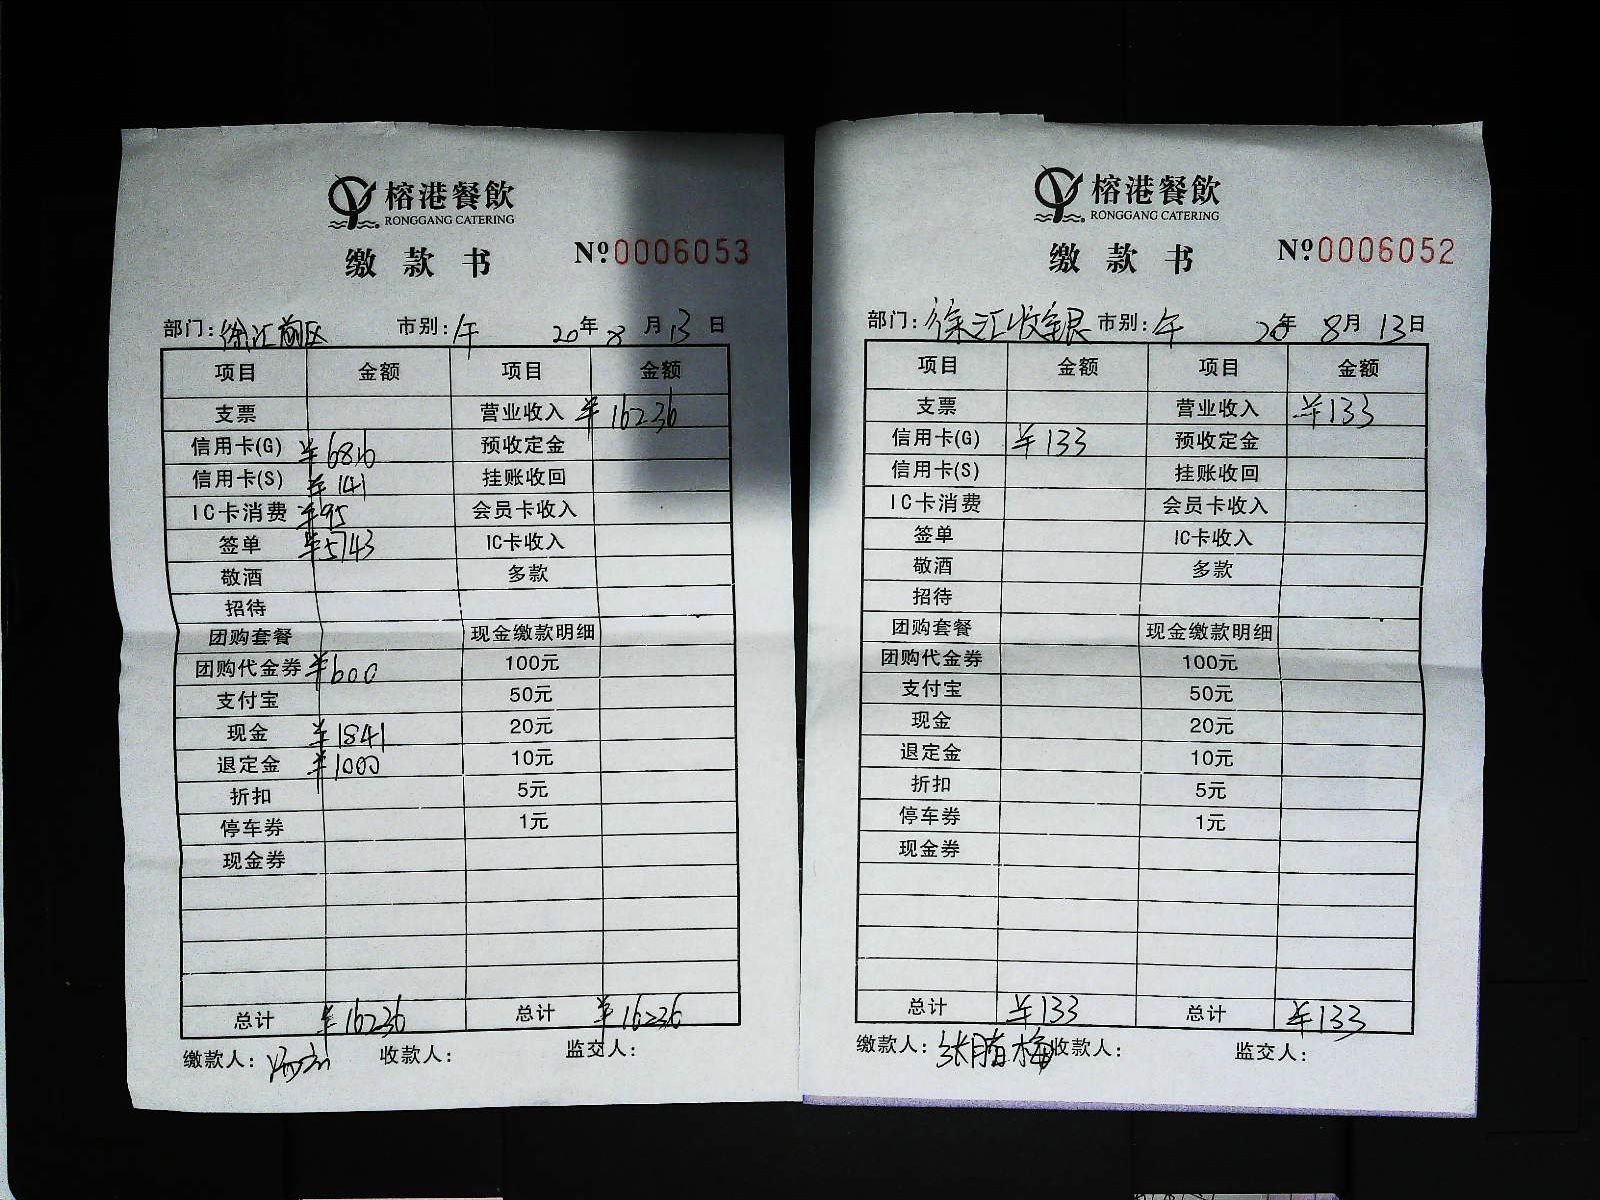 榕港餐飲
RONGGANG CATERING
缴款书 Nº 0006053
部门：徐汇前区 市别：午 20年8月13日
项目 金额 项目 金额
支票 营业收入 ¥16236
信用卡(G) ¥6816 预收定金
信用卡(S) ¥141 挂账收回
IC卡消费 ¥95 会员卡收入
签单 ¥5743 IC卡收入
敬酒 多款
招待
团购套餐 现金缴款明细
团购代金券 ¥600 100元
支付宝 50元
现金 ¥1841 20元
退定金 ¥1000 10元
折扣 5元
停车券 1元
现金券
总计 ¥16236 总计 ¥16236
缴款人： 收款人： 监交人：
榕港餐飲
RONGGANG CATERING
缴款书 Nº 0006052
部门：徐汇收银 市别：午 20年8月13日
项目 金额 项目 金额
支票 营业收入 ¥133
信用卡(G) ¥133 预收定金
信用卡(S) 挂账收回
IC卡消费 会员卡收入
签单 IC卡收入
敬酒 多款
招待
团购套餐 现金缴款明细
团购代金券 100元
支付宝 50元
现金 20元
退定金 10元
折扣 5元
停车券 1元
现金券
总计 ¥133 总计 ¥133
缴款人：张腊梅 收款人： 监交人：